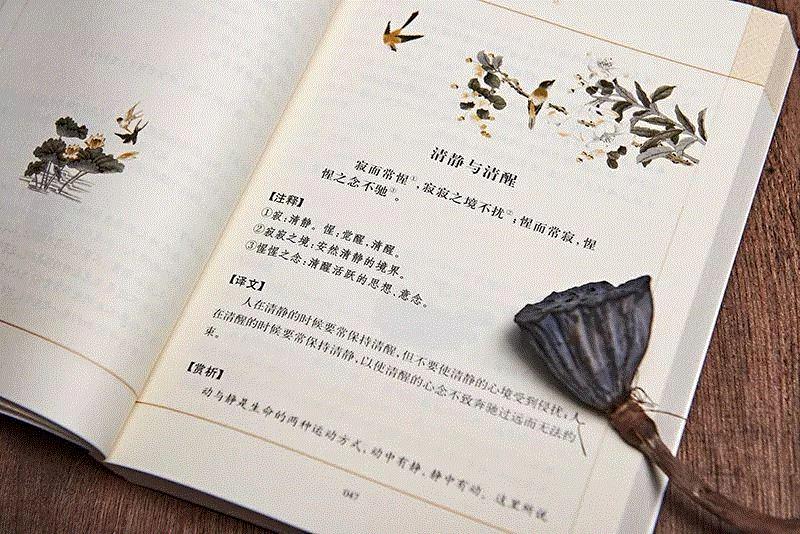 清静与清醒
寂而常惺①，寂寂之境不扰②；惺而常寂，惺
惺之念不驰③。
【注释】
①寂：清静。惺：觉醒，清醒。
②寂寂之境：安然清静的境界。
③惺惺之念：清醒活跃的思想、意念。
【译文】
人在清静的时候要常保持清醒，但不要使清静的心境受到侵扰；人
在清醒的时候要常保持清静，以使清醒的心念不致奔驰过远而无法约
束。
【赏析】
动与静是生命的两种运动方式，动中有静、静中有动。这里所说
047